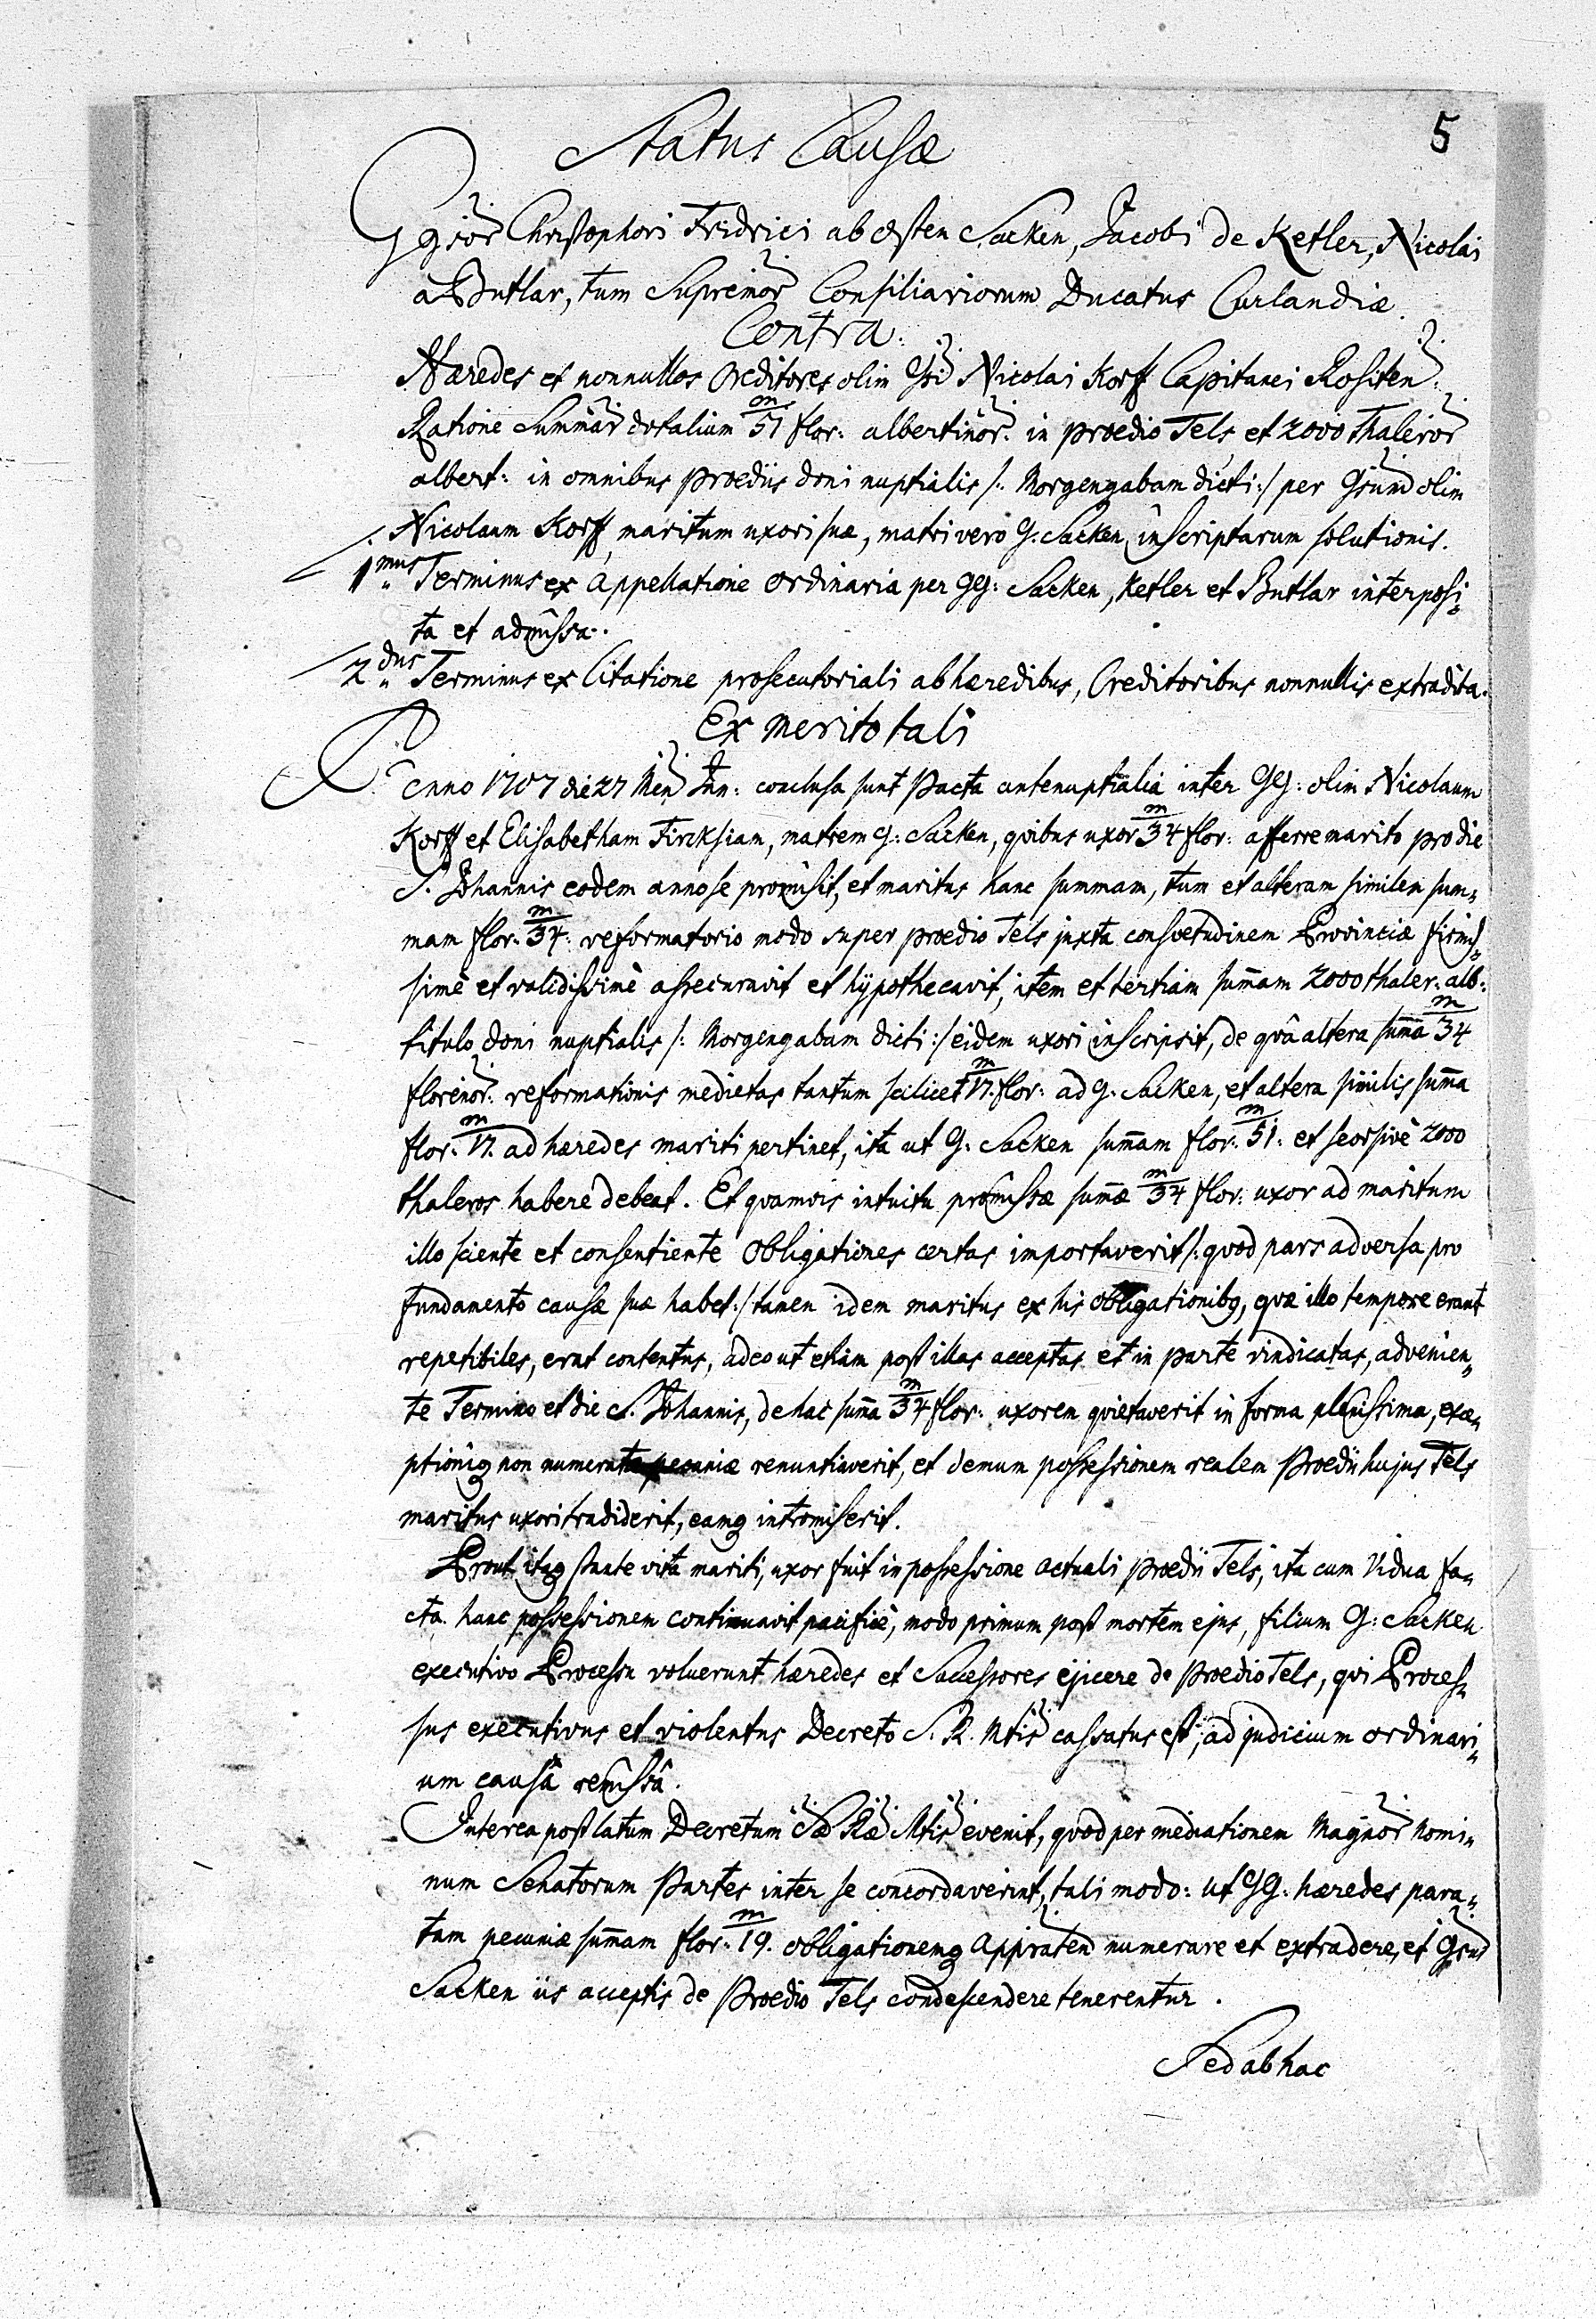 5
Status Causæ
Ggsior Christophori Fridrici ab Osten Sacken, Jacobi de Ketler, Nicolai
a Butlar, tum Supremor Consiliariorum Ducatus Curlandiæ.
Contra.
Hæredes et nonnullos Creditores olim Gsi Nicolai Korff Capitanei Rositen:
Ratione Summar dotalium m/51 flor: albertinor: in prædio Tels et 2000 Thaleror
albert: in omnibus prædiis doni nuptialis /: Morgengabam dicti :/ per Gsum olim
Nicolaum Korff, maritum uxori suæ, matri vero G. Sacken inscriptarum solutionis.
1mus Terminus ex Appellatione ordinaria per GG: Sacken, Ketler et Butlar interposi-
ta et admissa.
2dus Terminus ex Citatione prosecutoriali ab hæredibus, Creditoribus nonnullis extradita.
Ex merito tali
Anno 1707 die 27 Men Jun: conclusa sunt pacta antenuptialia inter GG: olim Nicolaum
Korff et Elisabetham Fircksiam, matrem G: Sacken, quibus uxor m/34 flor: afferre marito pro die
S. Johannis eodem anno se promisit, et maritus hanc summam, tum et alteram similem sum-
mam flor: m/34: reformatorio modo super prædio Tels juxta consvetudinem Provinciæ firmis-
simè et validissimè assecuravit et hÿpothecavit, item et tertiam sum̄am 2000 thaler: alb:
titulo doni nuptialis /: Morgengabam dicti :/ eidem uxori inscripsit, de quâ altera sum̄a m/34
florenor: reformationis medietas tantum scilicet m/17. flor: ad G. Sacken, et altera similis sum̄a
flor: m/17. ad hæredes mariti pertinet, ita ut G: Sacken sum̄am flor: m/51: et seorsivè 2000
thaleros habere debeat. Et quamvis intuitu promissæ sum̄æ m/34 flor: uxor ad maritum
illo sciente et consentiente obligationes certas importaverit /: quod pars adversa pro
fundamento causæ suæ habet :/ tamen idem maritus ex his obligationibq, quæ illo tempore erant
repetibiles, erat contentus, adeo ut etiam post illas acceptas et in parte vindicatas, advenien-
te Termino et die S. Johannis, de hac sum̄a m/34 flor: uxorem quietaverit in forma plenissima, exce-
ptioniq non numeratæ pecuniæ renuntiaverit, et demum possessionem realem Prædii hujus Tels
maritus uxori tradiderit, eamq intromiserit.
Prout itaq stante vita mariti, uxor fuit in possessione actuali prædii Tels, ita cum vidua fa-
cta hanc possessionem continuavit pacificè, modo primum post mortem ejus, filium G: Sacken
executivo Processu voluerunt hæredes et Successores ejicere de prædio Tels, qui Proces-
sus executivus et violentus Decreto S. R. Mtis cassatus est, ad judicium ordinari-
um causâ remissâ.
Interea post latum Decretum Sæ Ræ Mtis evenit, quod per mediationem Magnor Nomi-
num Senatorum Partes inter se concordaverint, tali modo: ut GG: hæredes para-
tam pecuniæ sum̄am flor: m/19. obligationemq Appraten numerare et extradere, et Gsus
Sacken iis acceptis de Prædio Tels condescendere tenerentur.
Sed ab hac